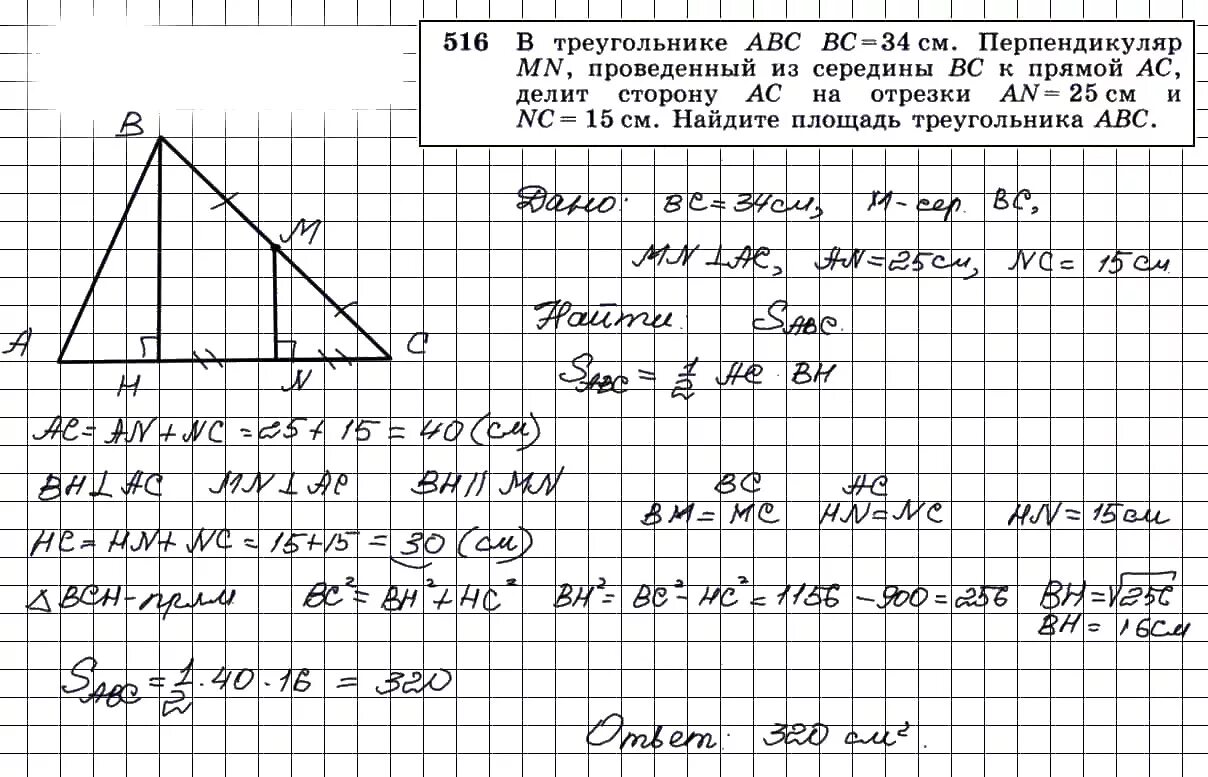 516 В треугольнике ABC BC=34 см. Перпендикуляр
MN, проведенный из середины BC к прямой AC,
делит сторону AC на отрезки AN=25 см и
NC=15 см. Найдите площадь треугольника ABC.
B
M
A
C
H
N
Дано: BC=34см, M-сер. BC,
MN⊥AC, AN=25см, NC= 15 см
Найти: S_ABC.
S_ABC = 1/2 AC · BH
AC= AN+NC =25+15 = 40 (см)
BH⊥AC MN⊥AC BH∥MN BC AC
BM=MC HN=NC HN=15см
HC= HN+NC = 15+15 = 30 (см)
△BCH-прям BC²=BH²+HC² BH²= BC²-HC²=1156-900=256 BH=√256
BH= 16см
S_ABC = 1/2 · 40 · 16 = 320
Ответ: 320 см².